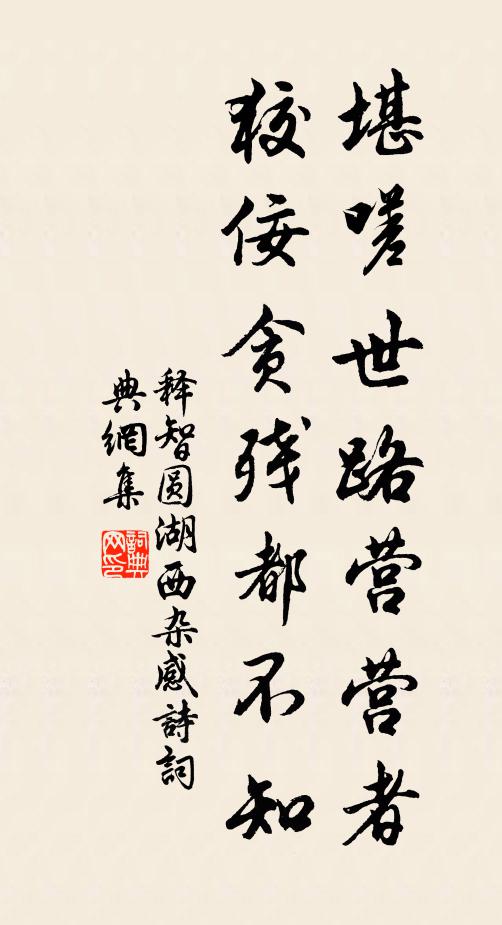 堪嗟世路营营者
狡佞贪残都不知
释智圆湖西杂感詩詞
典網集
詞典
网印